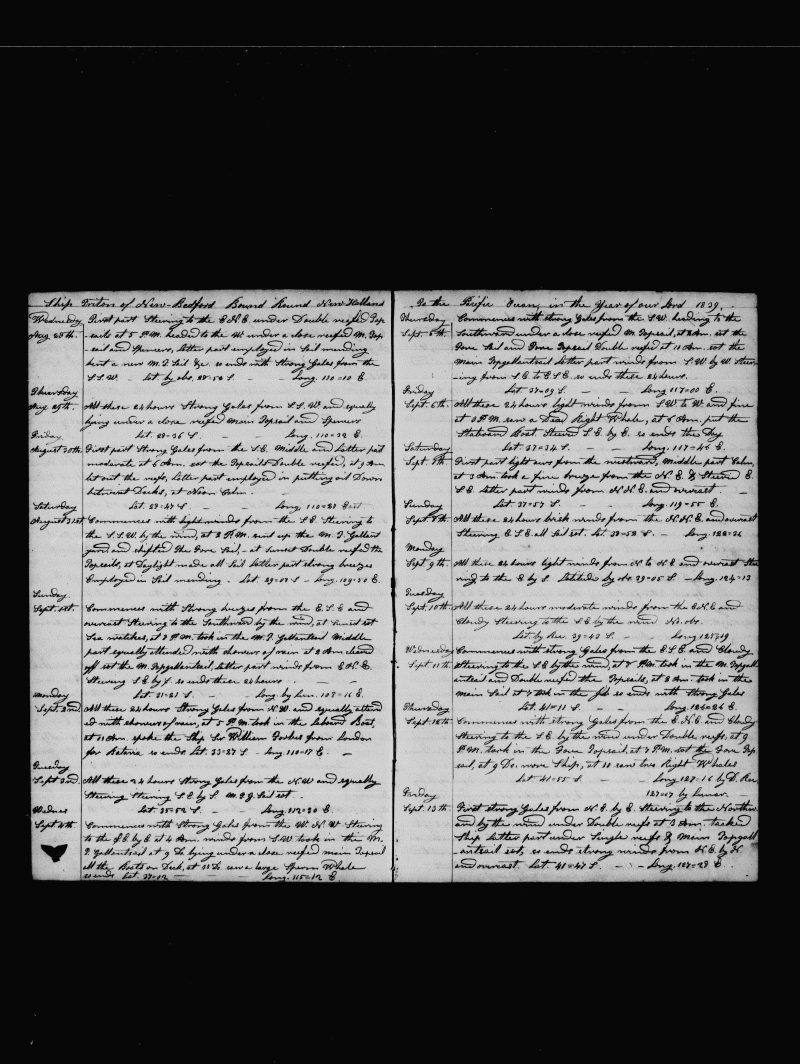 Ship Triton of New-Bedford Bound Round New Holland
Wednesday First part Steering to the E.N.E. under Double reefed Top
Aug 28th. sails at 5 P.M. headed to the W. under a close reefed M. Top
sail and Spencers, Latter part employed in Sail mending
bent a new M. T. Sail &c. so ends with Strong Gales from the
S.S.W. - Lat by obs. 28=50 S. - Long. 110=10 E.
Thursday
Aug 29th. All these 24 hours Strong Gales from S.S.W. and squally
lying under a close reefed Main Topsail and Spencers
Friday Lat. 29=36 S. - - Long. 110=32 E.
August 30th. First part Strong Gales from the S.E. Middle and Latter part
moderate at 6 Am. set the Topsails Double reefed, at 9 Am
let out the reefs, Latter part employed in putting oil Down
between Decks, at Noon Calm.
Saturday Lat. 29=47 S. - - Long. 110=20 East
August 31st Commences with light winds from the S.E. Steering to
the S.S.W. by the wind, at 2 P.M. send up the M. T. Gallant
yard and shifted the Fore Sail, at sunset Double reefed the
Topsails, at Daylight made all Sail Latter part strong breezes
Employed in Sail mending. Lat. 29=07 S. - Long. 109=50 E.
Sunday.
Sept. 1st. Commences with Strong breezes from the E.S.E. and
overcast Steering to the Southward by the wind, at Sunset set
Sea watches, at 7 P.M. took in the M. T. Gallantsail Middle
part squally attended with showers of rain at 2 Am. cleared
off set the M. Topgallantsail, Latter part winds from E.N.E.
Steering S.E. by S. so ends these 24 hours. - -
Monday Lat. 31=21 S. - Long. by Lun. 109=16 E.
Sept. 2nd. All these 24 hours Strong Gales from N.W. and squally attend
ed with showers of rain, at 5 P.M. took in the Labourd Boat,
at 11 Am. spoke the Ship Sir William Forbes from London
for Batavia so ends Lat. 33=27 S. - Long 110=17 E. -
Tuesday
Sept 3rd. All these 24 hours Strong Gales from the N.W. and squally
Steering Steering S.E. by S. M. T. G. Sail set.
Wednes Lat. 35=52 S. - Long. 112=30 E.
Sept 4th Commences with Strong Gales from the W.N.W. Steering
to the S.E. by E. at 4 Am. winds from S.W. took in the M.
T. Gallantsail at 9 Do lying under a close reefed main Topsail
all the Boats on Deck, at 11 Do. saw a large Sperm Whale
so ends Lat. 37=02 - - Long. 115=12 E
To the Pacific Ocean, in the Year of our Lord 1839.
Thursday Commences with strong Gales from the S.W. heading to the
Sept. 5th. Southward under a close reefed M. Topsail, at 8 Am. set the
Fore Sail and Fore Topsail Double reefed at 10 Am. set the
Main Topgallantsail Latter part winds from S.W. by W. Steer
-ing from S.E. to E.S.E. so ends these 24 hours.
Friday Lat. 37=09 S. - - Long 117=00 E.
Sept. 6th. All these 24 hours light winds from S.W. to W. and fine
at 3 P.M. saw a Dead Right Whale, at 6 Am. put the
Starboard Boat Steered S.E. by E. so ends the Day
Saturday Lat. 37=34 S. - - Long. 117=46 E.
Sept 7th. First part light airs from the westward, Middle part Calm,
at 3 Am. took a fine breeze from the N.E. & Steered E.
S.E. Latter part winds from N.N.E. and overcast. -
Sunday Lat. 37=57 S. - Long. 119=55 E.
Sept 8th. All these 24 hours brisk winds from the N.N.E. and overcast
Steering E.S.E. all Sail set. Lat. 38=58 S. - Long. 122=26
Monday
Sept 9th. All these 24 hours light winds from N. to N.E. and overcast Stee
ring to the E. by S. Latitude by obs. 39=05 S. - Long. 124=13
Tuesday
Sept. 10th. All these 24 hours moderate winds from the E.N.E and
Cloudy Steering to the S.E. by the wind No. obs.
Lat. by Acc. 39=43 S. - Long 125=19
Wednesday Commences with strong Gales from the E.S.E. and Cloudy
Sept 11th. Steering to the S.E. by the wind, at 5 P.M. took in the M. Topgall
antsail and Double reefed the Topsails, at 2 Am. took in the
main Sail at 7 took in the Jib so ends with strong Gales
Thursday Lat. 41=11 S. - Long. 126=26 E.
Sept 12th Commences with strong Gales from the E.N.E. and Cloudy
Steering to the S.E. by the wind under Double reefs, at 9
P.M. took in the Fore Topsail, at 7 P.M. set the Fore Top
sail, at 9 Do. wore Ship, at 10 saw two Right Whales
Lat. 41=55 S. - Long 127=16 by D. Rec.
Friday 127=07 by Lunar. -
Sept. 13th. First strong Gales from N.E. by E. Steering to the Northw
ard by the wind under Double reefs at 3 Am. tacked
Ship Latter part under Single reefs & Main Topgall
-antsail set, so ends strong winds from N.E. by N.
and overcast. Lat. 41=47 S. - - Long. 127=23 E.